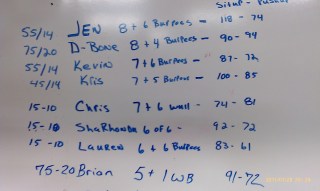 Situp - Pushup
55/14 JEN 8 + 6 Burpees - 118 - 74
75/20 D-Bone 8 + 4 Burpees - 90 - 94
55/14 Kevin 7 + 6 Burpees - 87 - 72
45/14 Kris 7 + 5 Burpees - 100 - 85
15-10 Chris 7 + 6 wall - 74 - 81
15-10 ShaRhonda 6 of 6 - 92 - 72
15-10 Lauren 6 + 6 Burpees 83 - 61
75-20 Brian 5 + 1 WB 91-72